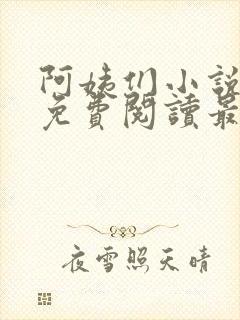 阿姨们小說
免費閱讀最
夜雪照天晴